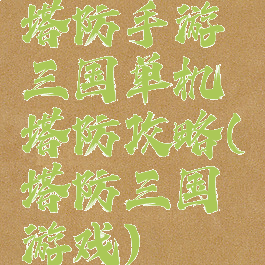 塔防手游
三国单机
塔防攻略(
塔防三国
游戏)